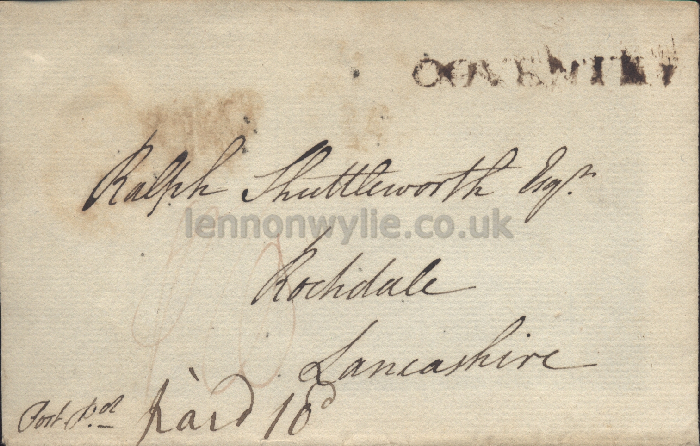 COVENTRY
Ralph Shuttleworth Esqr.
lennonwylie.co.uk
Rochdale
Lancashire
Post Pd. paid 10d